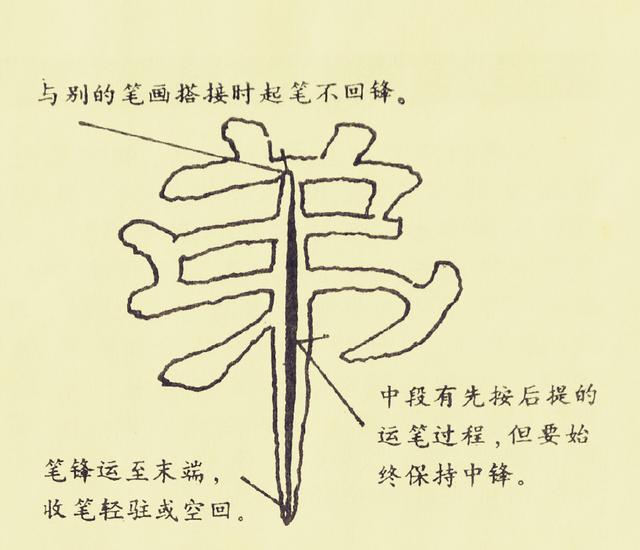 与别的笔画搭接时起笔不回锋。
弟
中段有先按后提的
运笔过程，但要始
终保持中锋。
笔锋运至末端，
收笔轻驻或空回。